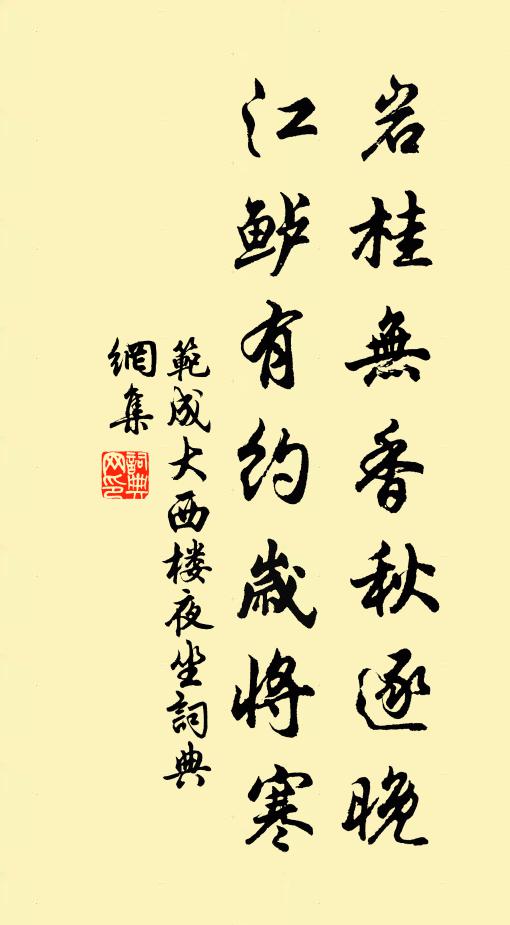 岩桂無香秋逐晚
江鲈有约歲將寒
範成大西楼夜坐詞典
網集
詞典網印